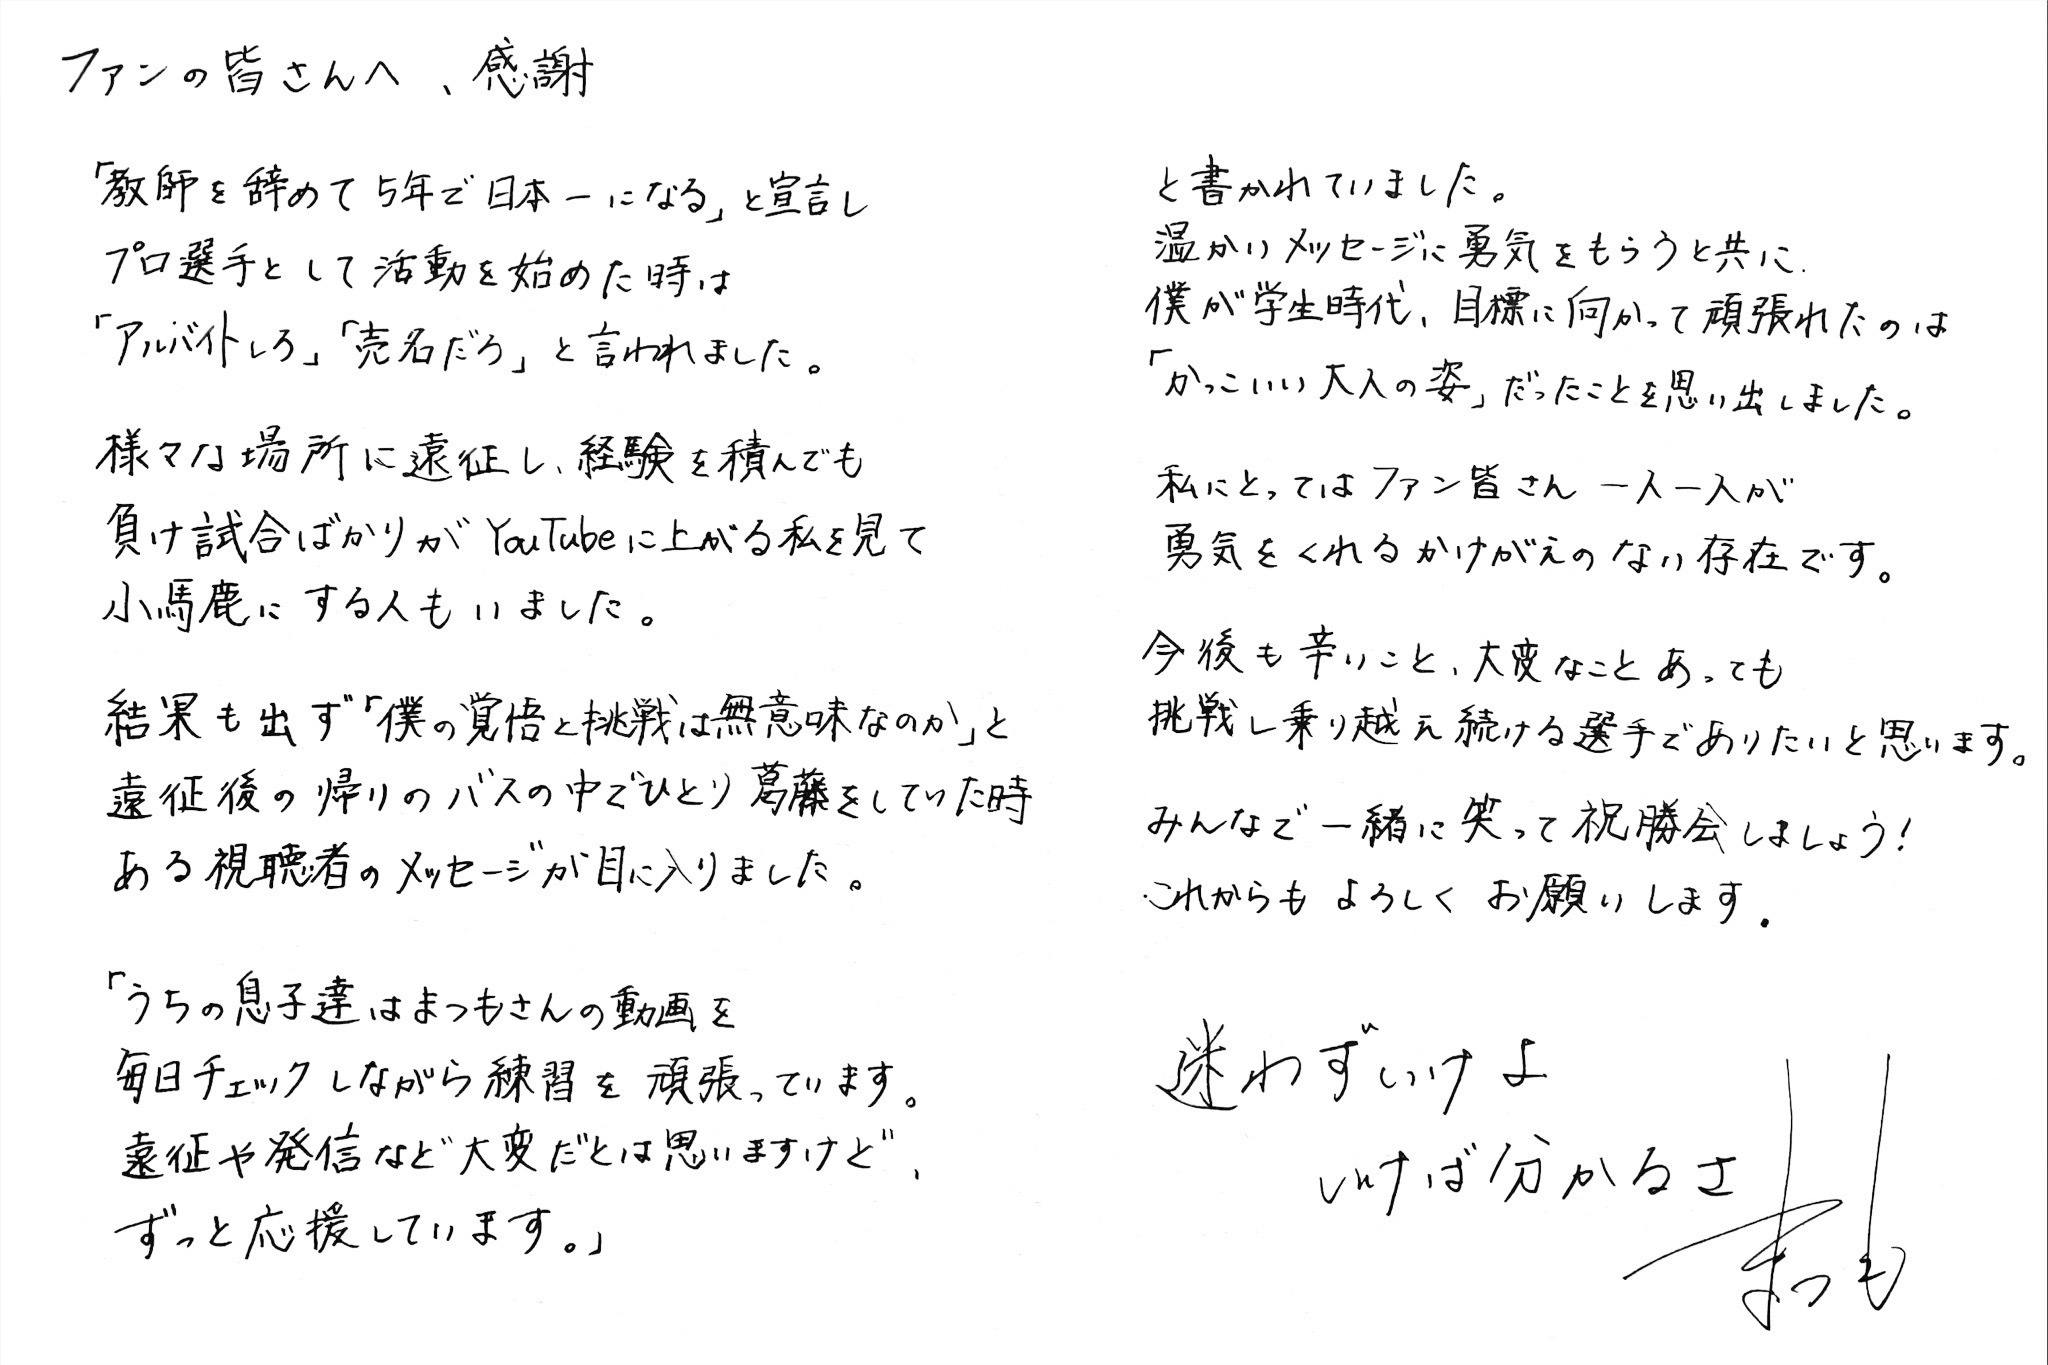 ファンの皆さんへ、感謝
「教師を辞めて5年で日本一になる」と宣言し
プロ選手として活動を始めた時は
「アルバイトしろ」「売名だろ」と言われました。
様々な場所に遠征し、経験を積んでも
負け試合ばかりがYouTubeに上がる私を見て
小馬鹿にする人もいました。
結果も出ず「僕の覚悟と挑戦は無意味なのか」と
遠征後の帰りのバスの中でひとり葛藤をしていた時
ある視聴者のメッセージが目に入りました。
「うちの息子達はまつもさんの動画を
毎日チェックしながら練習を頑張っています。
遠征や発信など大変だとは思いますけど、
ずっと応援しています。」
と書かれていました。
温かいメッセージに勇気をもらうと共に、
僕が学生時代、目標に向かって頑張れたのは
「かっこいい大人の姿」だったことを思い出しました。
私にとってはファン皆さん一人一人が
勇気をくれるかけがえのない存在です。
今後も辛いこと、大変なことあっても
挑戦し乗り越え続ける選手でありたいと思います。
みんなで一緒に笑って祝勝会しましょう!
これからもよろしくお願いします.
迷わずいけよ
いけば分かるさ
まつも